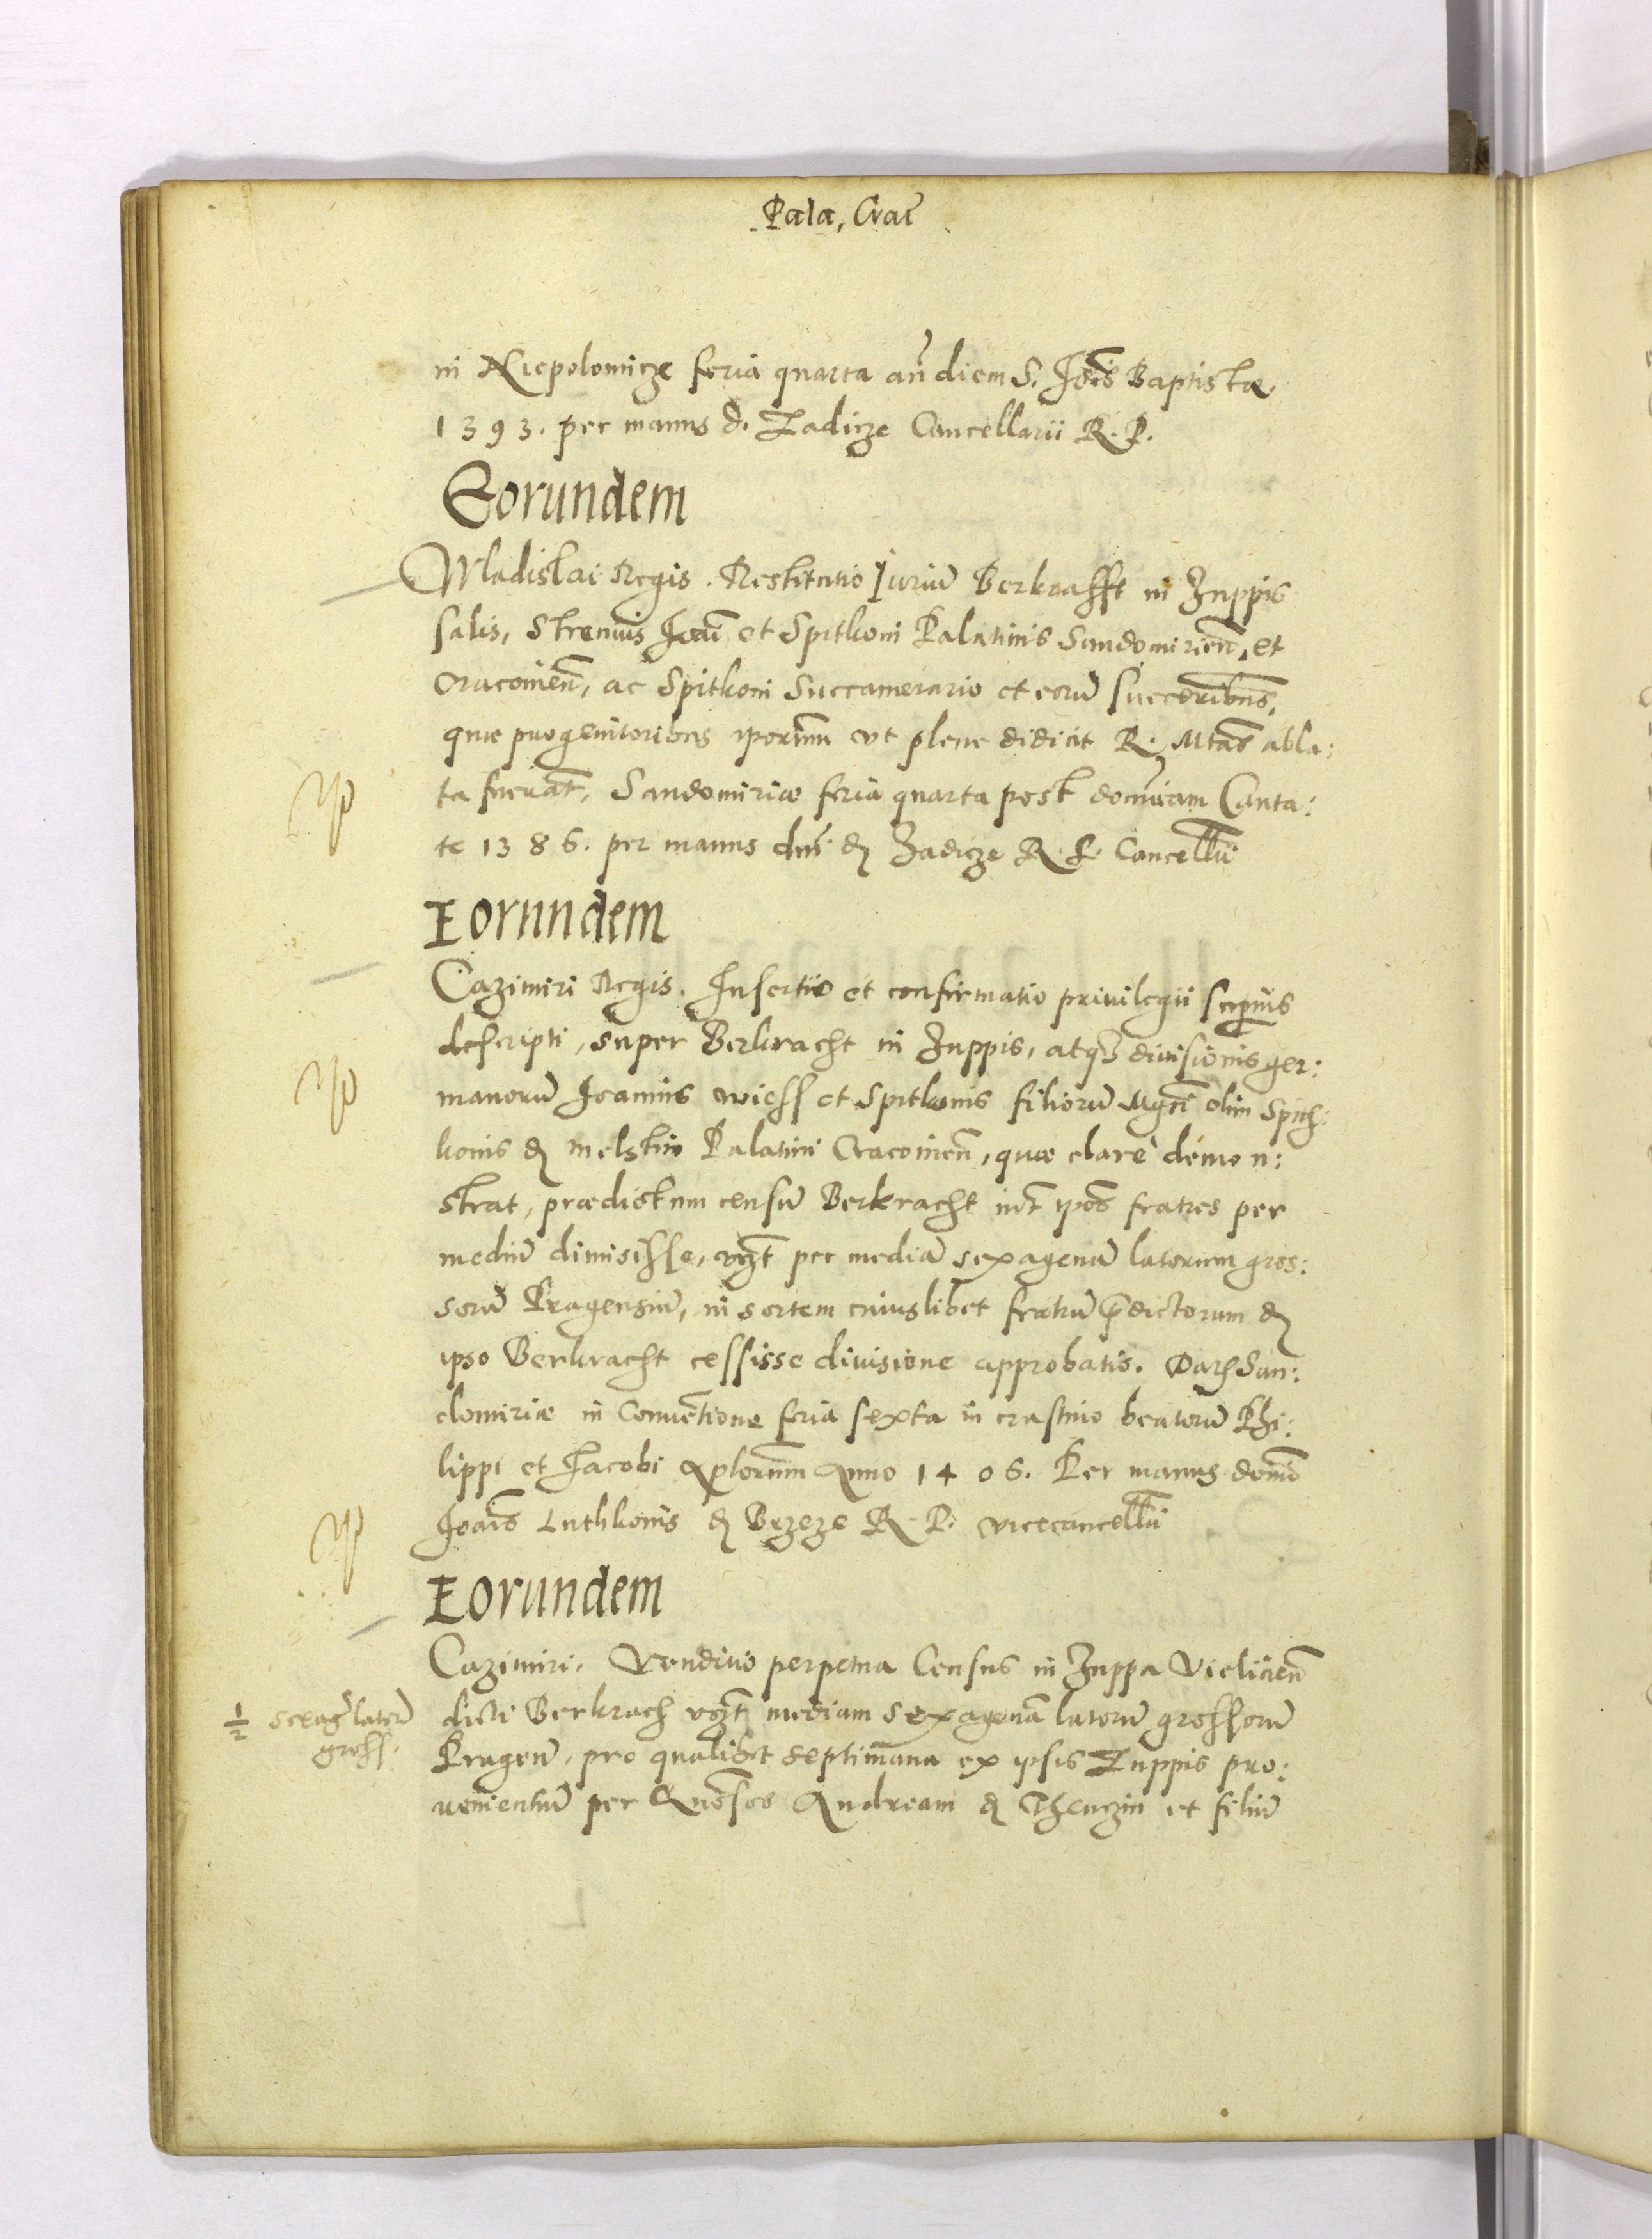 Pala, Crac̃
in Niepolomicze feria quarta añ diem S. Iõis Baptistæ
1393. per manus d. Zadicze Cancellarii R. P.
Eorundem
Wladislai Regis. Restitutio Iuriũ Berkrafft in Zuppis
salis, strenuis Ioañi et Spitkoni Palatinis Sandomirieñ, et
Cracovieñ, ac Spitkoni Succamerario et eorũ succeoribus,
quæ progenitoribus iporum ut plene didicit R. Mtas abla:
ta fuerãt, Sandomiriæ feria quarta post domicam Canta:
te 1386. per manus dñi de Zadicze R. P. Cancellii
Eorundem
Cazimiri Regis. Insertio et confirmatio privilegii superius
descripti, super Berkracht in Zuppis, atq3 divisionis ger:
manorũ Ioannis wiess et Spitkonis filiorũ Mgci olim Spith:
konis de Melstin Palatini Cracovieñ, quæ clarè démon:
strat, prædictum censũ Berkracht int ipos fratres per
mediũ dimisisse, vizt per mediã sexagenã latorum gros:
sorũ Pragensiũ, in sortem cuiuslibet fratrũ prędictorum de
ipso Berkracht cessisse divisione approbatis. Dat San:
domiriæ in Conuẽtione feria sexta in crastino beatorũ Phi:
lippi et Iacobi Aplorum Anno 1406. Per manus domĩ
Ioañis Luthkonis de Brzeze R. P. vicecancellii
Eorundem
Cazimiri. Venditio perpetua Census in Zuppa Vielicieñ
dicti Berkrach vizt mediam sexagenã latorũ grossorũ
½ sexag latorũ
gross.
Prageñ. pro qualibet septimana ex ipsis Zuppis pro:
venientiũ per Gnosos Andream de Thenczin et filiũ